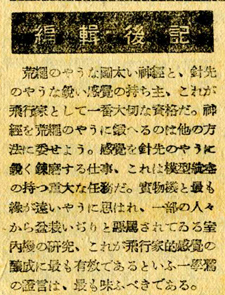 編輯後記
荒繩のやうな圖太い神經と、針先
のやうな鋭い感覺の持ち主、これが
飛行家として一番大切な資格だ。神
經を荒繩のやうに鍛へるのは他の方
法に委せよう。感覺を針先のやうに
鋭く錬磨する仕事、これは模型航空
の持つ重大な任務だ。實物機と最も
緣が遠いやうに思はれ、一部の人々
から盆栽いぢりと罵られてゐる室
內機の研究、これが飛行家的感覺の
釀成に最も有效であるといふ一學窓
の證言は、最も味ふべきである。